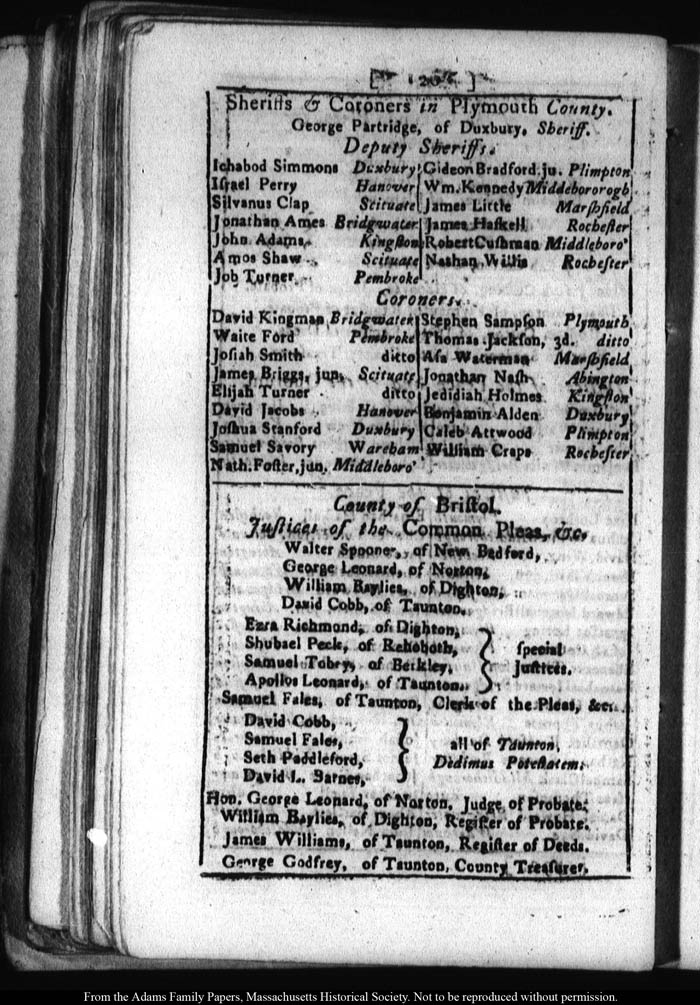 [ 120 ]
Sheriffs & Coroners in Plymouth County.
George Partridge, of Duxbury, Sheriff.
Deputy Sheriffs.
Ichabod Simmons Duxbury Gideon Bradford, ju. Plimpton
Iſrael Perry Hanover Wm. Kennedy Middebororogh
Silvanus Clap Scituate James Little Marſhfield
Jonathan Ames Bridgwater James Haſkell Rocheſter
John Adams, Kingſton Robert Cuſhman Middleboro'
Amos Shaw Scituate Nathan Willis Rocheſter
Job Turner Pembroke
Coroners.
David Kingman Bridgwater Stephen Sampſon Plymouth
Waite Ford Pembroke Thomas Jackſon, 3d. ditto
Joſiah Smith ditto Aſa Waterman Marſhfield
James Briggs, jun. Scituate Jonathan Naſh Abington
Elijah Turner ditto Jedidiah Holmes Kingſton
David Jacobs Hanover Benjamin Alden Duxbury
Joſhua Stanford Duxbury Caleb Attwood Plimpton
Samuel Savory Wareham William Craps Rocheſter
Nath. Foſter, jun. Middleboro'
County of Briſtol.
Juſtices of the Common Pleas, &c.
Walter Spooner, of New Bedford,
George Leonard, of Norton,
William Baylies, of Dighton,
David Cobb, of Taunton.
Ezra Richmond, of Dighton,
Shubael Peck, of Rehoboth,
Samuel Tobey, of Berkley,
Apollos Leonard, of Taunton.
ſpecial
Juſtices.
Samuel Fales, of Taunton, Clerk of the Pleas, &c.
David Cobb,
Samuel Fales,
Seth Paddleford,
David L. Barnes,
all of Taunton,
Dedimus Poteſtatem.
Hon. George Leonard, of Norton, Judge of Probate.
William Baylies, of Dighton, Regiſter of Probate.
James Williams, of Taunton, Regiſter of Deeds.
George Godfrey, of Taunton, County Treaſurer.
From the Adams Family Papers, Massachusetts Historical Society. Not to be reproduced without permission.